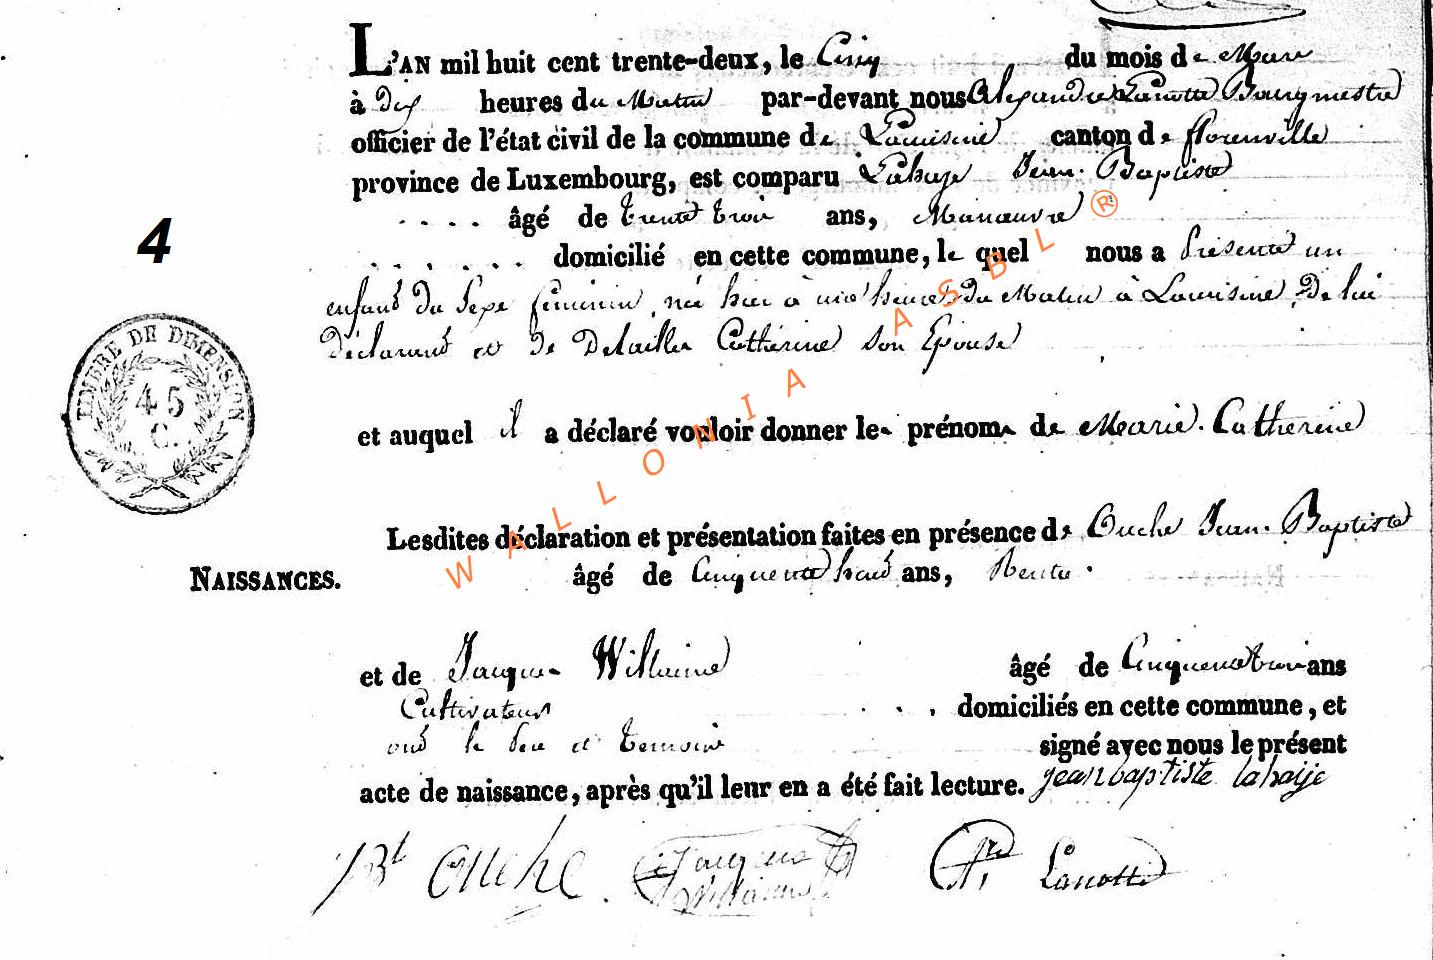 L'AN mil huit cent trente-deux, le Cinq du mois de Mars
à Dix heures du Matin par-devant nous Alexandre Lanotte Bourgmestre
officier de l'état civil de la commune de Lacuisine canton de florenville
province de Luxembourg, est comparu Lahaye Jean-Baptiste
âgé de trente trois ans, Manoeuvre
4
domicilié en cette commune, le quel nous a Présenté un
enfant du Sexe féminin, née hier à heures du Matin à Lacuisine, De lui
Déclarant et De Delailler Catherine son Epouse
TIMBRE DE DIMENSION
45
C.
et auquel il a déclaré vouloir donner les prénoms de Marie-Catherine
Lesdites déclaration et présentation faites en présence de Ouche Jean-Baptiste
NAISSANCES.
âgé de ans, Rentier
et de Jacques Willaime âgé de Cinquante trois ans
Cultivateur domiciliés en cette commune, et
ont le Pere et temoins signé avec nous le présent
acte de naissance, après qu'il leur en a été fait lecture. jean baptiste lahaije
JBt Ouche Jacques Willaime Lanotte
WALLONIA ASBL ®